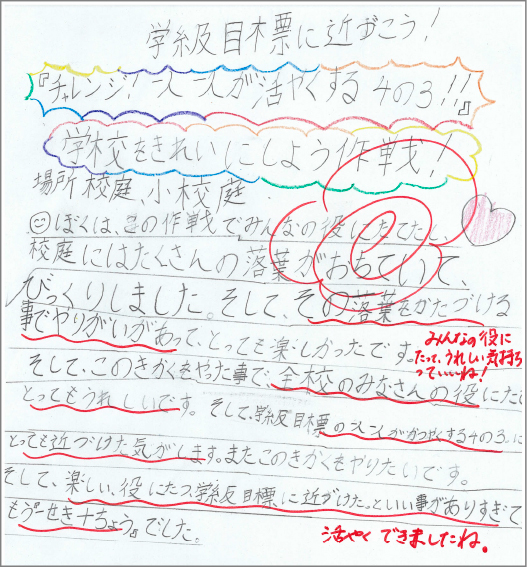 学級目標に近づこう!
『チャレンジ! 一人一人が活やくする 4の3!!』
学校をきれいにしよう作戦!
場所 校庭、小校庭
ぼくは、この作戦でみんなの役にたてたと、
校庭にはたくさんの落葉がおちていて、
びっくりしました。そして、その落葉をかたづける
事でやりがいがあって、とっても楽しかったです。
みんなの役に
たって、うれしい気持ち
っていいね!
そして、このきかくをやった事で、全校のみなさんの役にたて
とってもうれしいです。そして、学級目標の一人一人がかつやくする4の3に
とっても近づけた気がします。またこのきかくをやりたいです。
そして、楽しい、役にたつ、学級目標に近づけた。といい事がありすぎて
もう『一せき十ちょう』でした。
活やく できましたね。